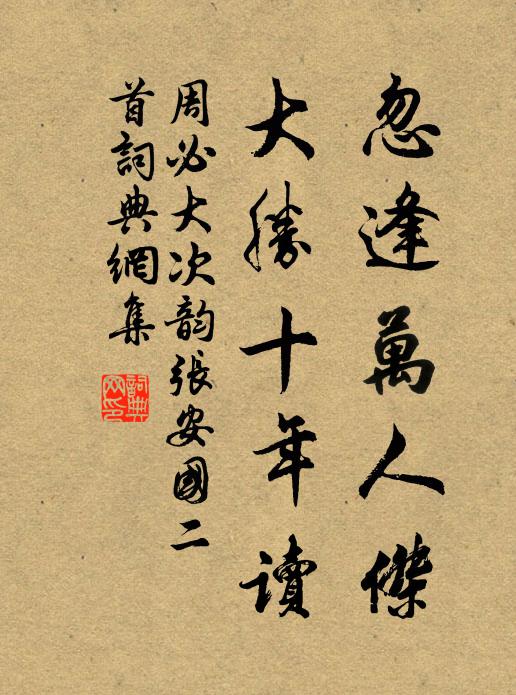 忽逢萬人傑
大勝十年讀
周必大次韵張安國二
首詞典網集
詞典網印